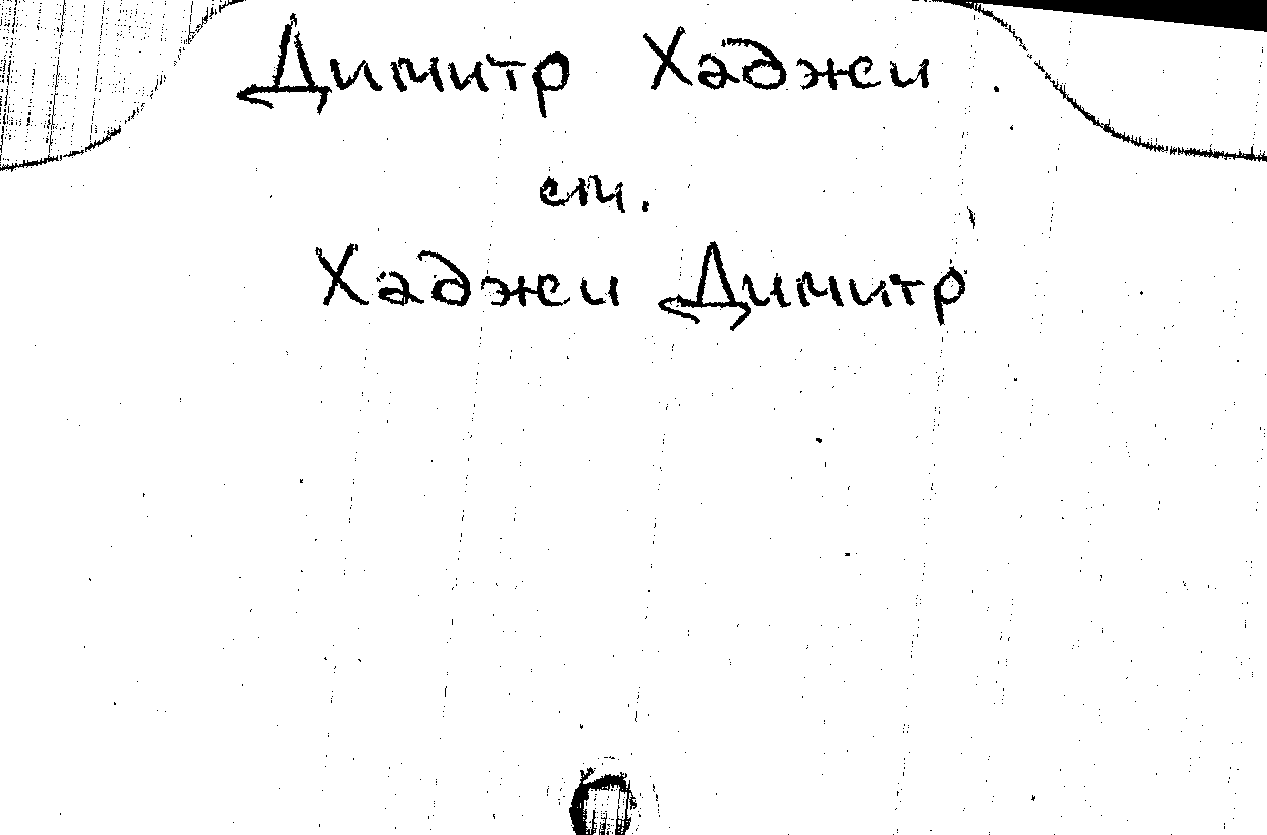 Димитр Хаджи
см.
Хаджи Димитр